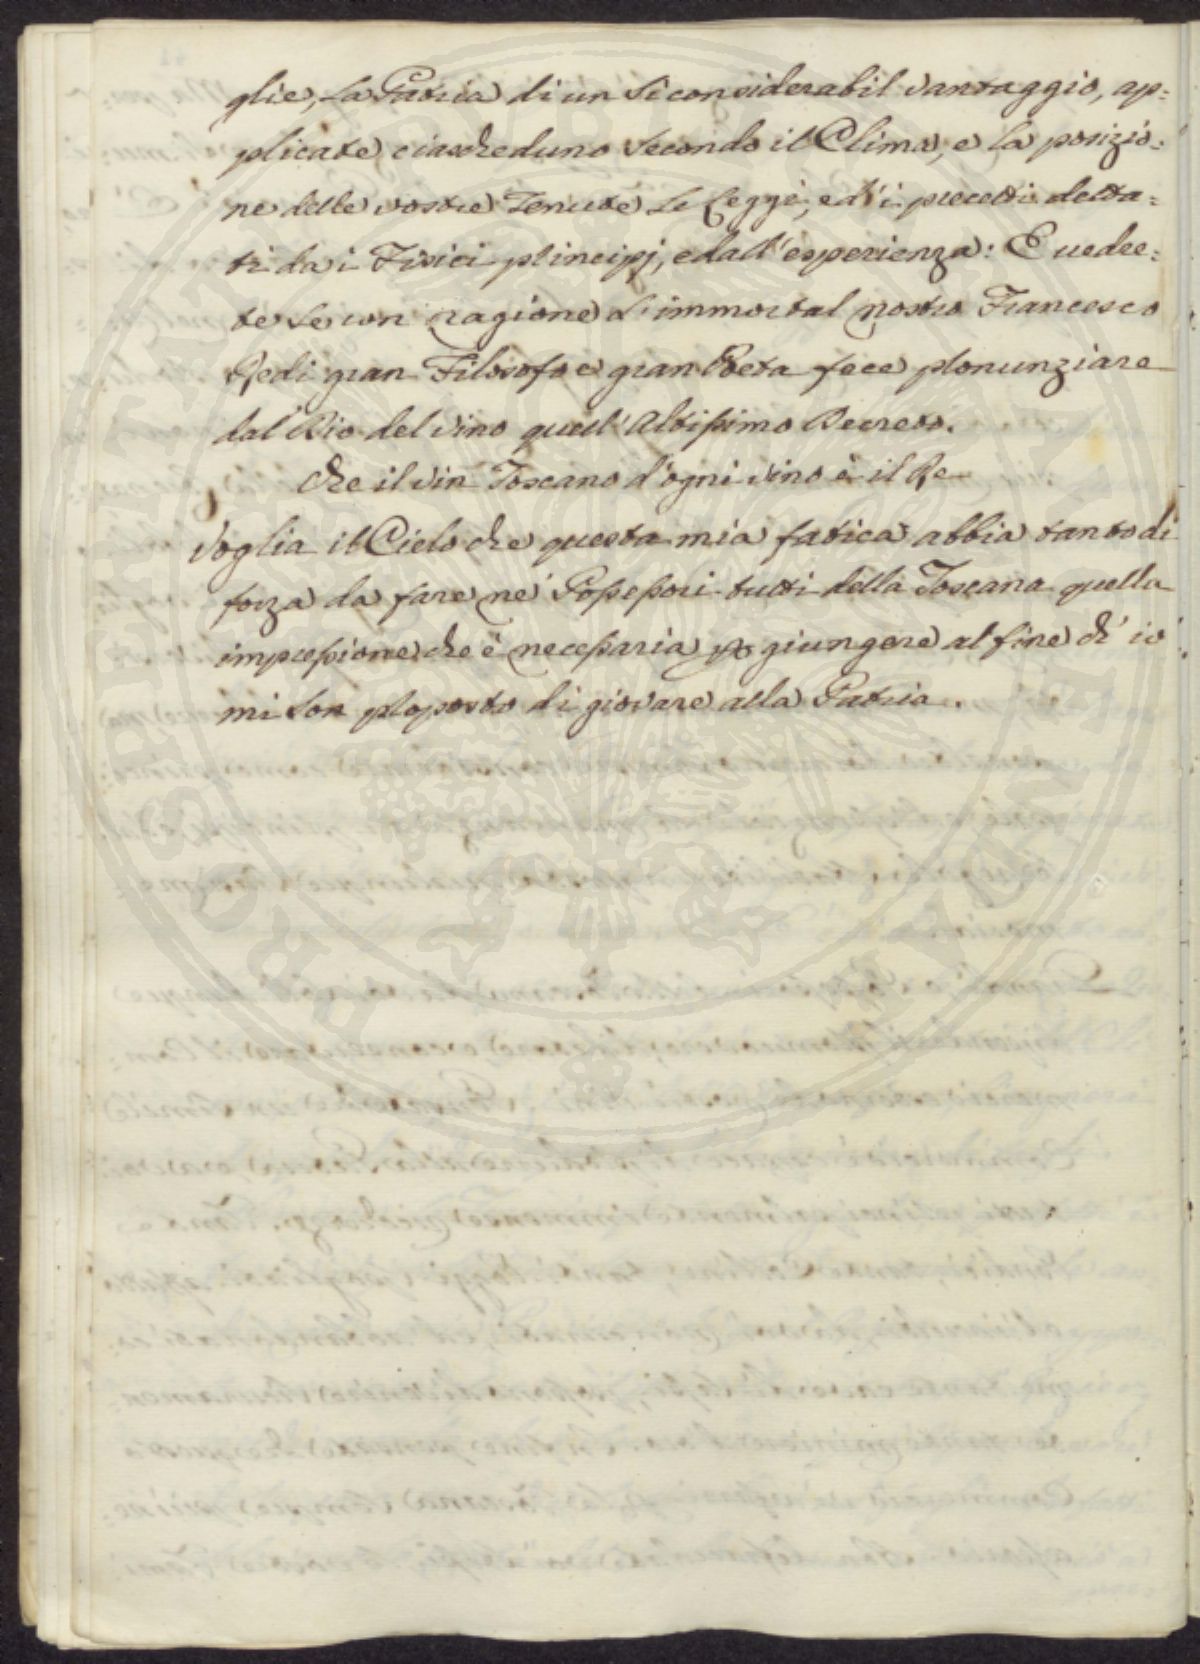 glie, la Patria di un Si considerabil vantaggio, ap=
plicate ciascheduno secondo il Clima, e la posizio=
ne delle vostre Tenute Le Leggi, ed i precetti detta=
ti da i Fisici principj, e dall'esperienza: E vedre=
te se con ragione L'immortal nostro Francesco
Redi gran Filosofo e gran Poeta fece pronunziare
dal Dio del vino quell'Altissimo Decreto.
Che il vin Toscano d'ogni vino è il Re
Voglia il Cielo che questa mia fatica abbia tanto di
forza da fare né Possessori tutti della Toscana quella
impressione che è necessaria per giungere al fine ch' io
mi son proposto di giovare alla Patria.
PROSPERITATI PUBLICAE AUGENDAE